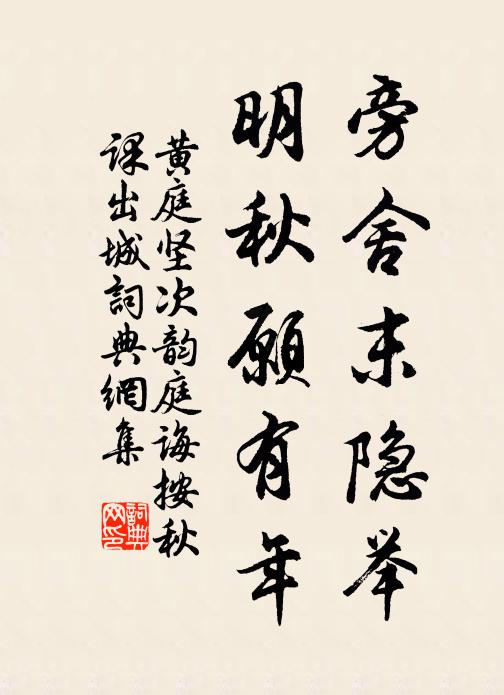 旁舍未隐举
明秋願有年
黄庭坚次韵庭诲按秋
课出城詞典網集
詞典网印